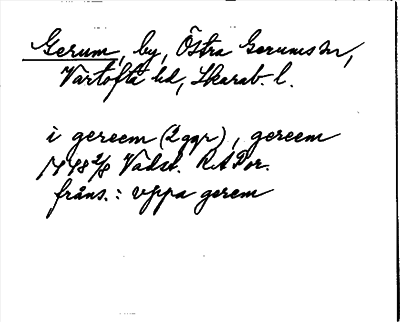 Gerum, by, Östra Gerums sn,
Vartofta hd, Skarab. l.
i gereem (2 ggr), gereem
1448 2/8 Vadst. RAPer.
fråns.: vppa gerem